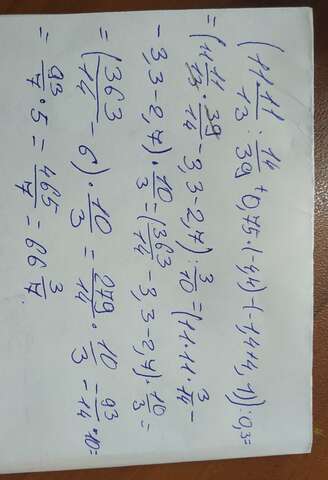 (11 11/13 : 14/39 + 0,75·(-4,4) - (-1,4+4,1)) : 0,3 =
= (11 11/13 · 39/14 - 3,3 - 2,7) : 3/10 = (11·11·3/14 -
- 3,3 - 2,7) · 10/3 = (363/14 - 3,3 - 2,7) · 10/3 =
= (363/14 - 6) · 10/3 = 279/14 · 10/3 = 93/14 · 10 =
= 93/7 · 5 = 465/7 = 66 3/7